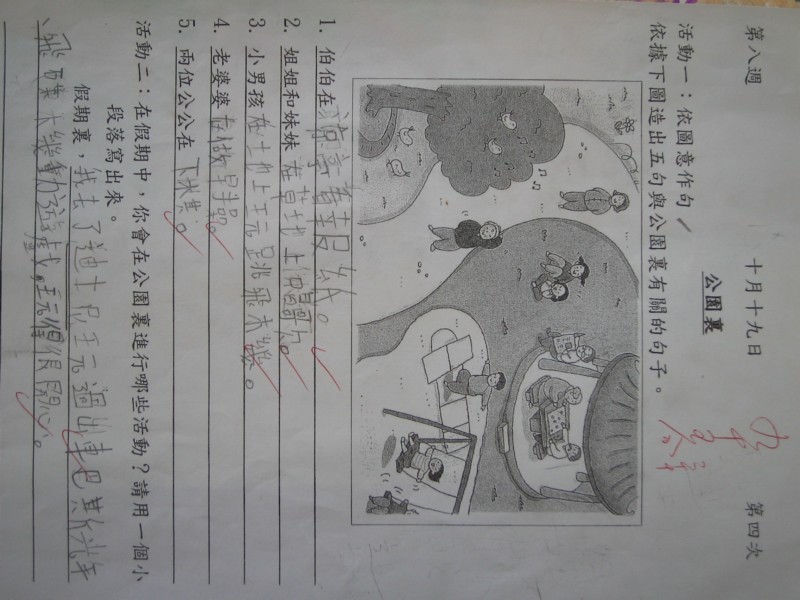 第八週 十月十九日 第四次
公園裏
活動一：依圖意作句
依據下圖造出五句與公園裏有關的句子。
1. 伯伯在涼亭看報紙。
2. 姐姐和妹妹在草地上唱歌。
3. 小男孩在土地上玩跳飛機。
4. 老婆婆在做早操。
5. 兩位公公在下棋。
活動二：在假期中，你會在公園裏進行哪些活動？請用一個小
段落寫出來。
假期裏，我去了迪士尼玩過山車巴斯光年
、飛機動遊戲，玩很開心。